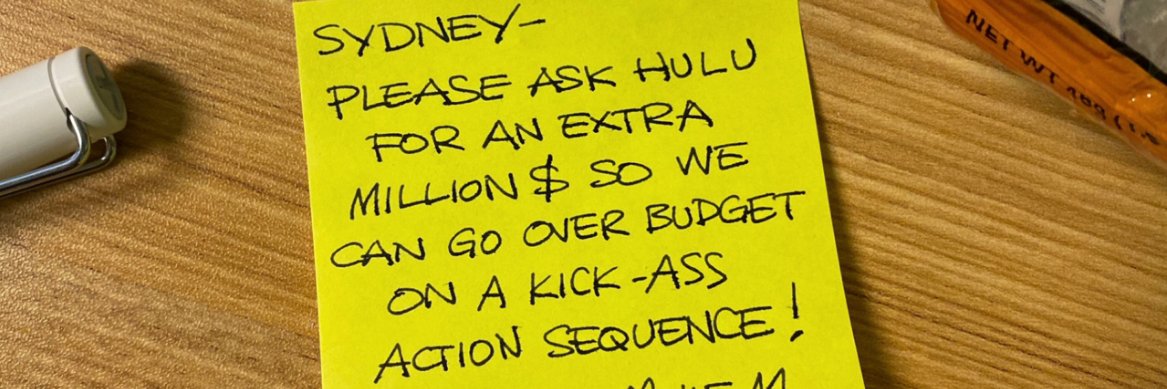 SYDNEY-
PLEASE ASK HULU
FOR AN EXTRA
MILLION $ SO WE
CAN GO OVER BUDGET
ON A KICK-ASS
ACTION SEQUENCE!
NET WT